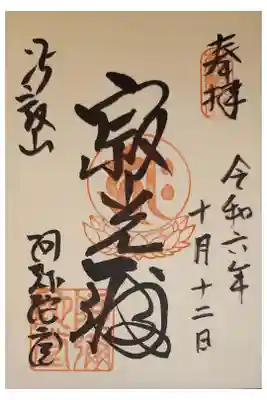 奉拝
令和六年
十月十二日
寂光
比叡山
阿弥陀堂